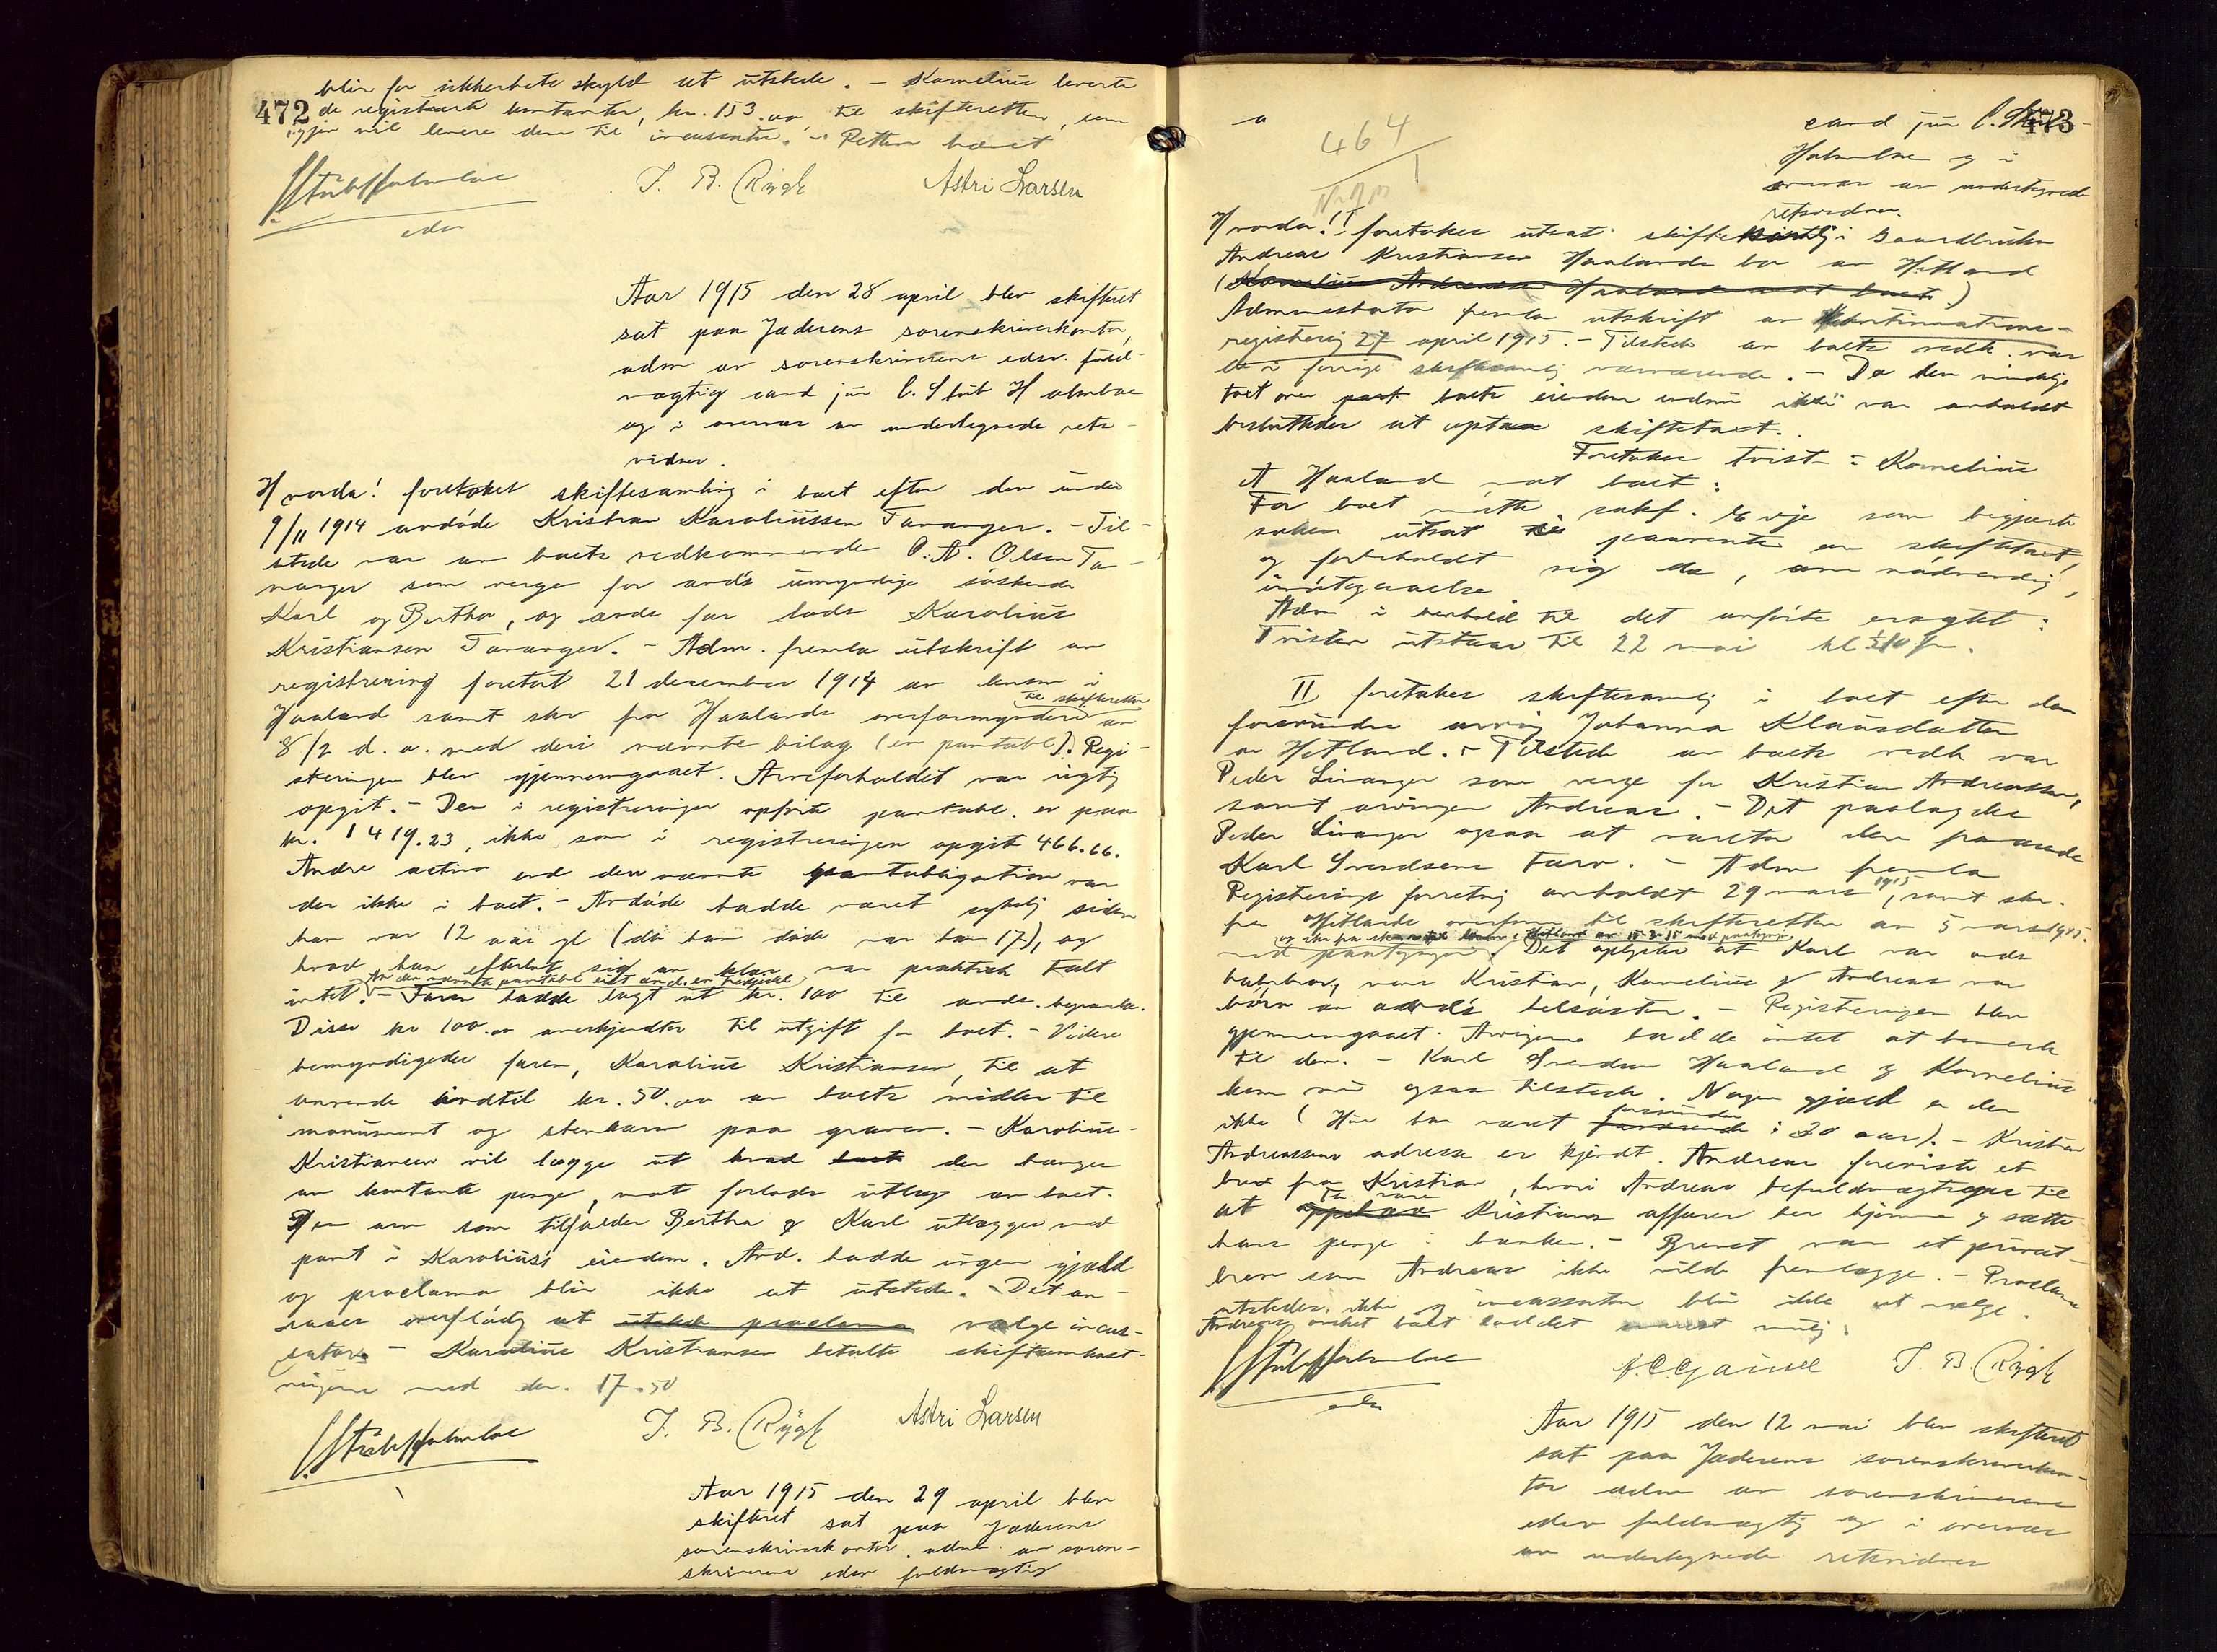 472
blir for sikkerhets skyld at utstede. – Kornelius leverte
de registrerte kontanter, kr. 153.00 til skifteretten, som
igjen vil levere dem til incassator. – Retten hævet
C Stub Holmboe
edsv
T. B. Rygh
Astri Larsen
Aar 1915 den 28 april blev skifteret
sat paa Jæderens sorenskriverkontor,
adm av sorenskriverens edsv. fuld-
mægtig cand jur C. Stub Holmboe
og i overvær av undertegnede rets-
vidner.
Hvorda! foretokes skiftesamling i boet efter den under
9/11 1914 avdøde Kristian Karoliussen Tananger. – Til-
stede var av boets vedkommende O. A. Olsen Ta-
nanger som verge for avd's umyndige søskende
Karl og Bertha, og avdødes far lods Karolius
Kristiansen Tananger. – Adm. fremla utskrift av
registrering foretat 21 december 1914 av lensm i
Haaland samt skr fra Haalands overformynderi til skifteretten av
8/2 d. a. med deri nævnte bilag (en pantobl). Regi-
streringen blev gjennemgaaet. Arveforholdet var rigtig
opgit. – Den i registreringen opførte pantobl. er paa
kr. 1419.23, ikke som i registreringen opgit 466.66.
Andre activa end den nævnte pantobligation var
der ikke i boet. – Avdøde hadde været sykelig siden
han var 12 aar gl (da han døde var han 17), og
hvad han efterlot sig av klær var praktisk talt
intet. – av den nævnte pantobl eiet avd. en tredjedel
Faren hadde lagt ut kr. 100 til avds. begravelse.
Disse kr 100.00 anerkjendtes til utgift for boet. – Videre
bemyndigedes faren, Karolius Kristiansen, til at
anvende indtil kr. 50.00 av boets midler til
monument og stenkarm paa graven. – Karolius
Kristiansen vil lægge ut hvad boet der trænges
av kontante penge, mot forlods utlæg av boet.
Den arv som tilfalder Bertha & Karl utlægges med
pant i Karolius's eiendom. Avd. hadde ingen gjæld
og proclama blir ikke at utstede. – Det an-
saaes overflødig at utstede proclama vælge incas-
sator. – Karolius Kristiansen betalte skifteomkost-
ningerne med kr. 17.50
C Stub Holmboe
T. B. Rygh
Astri Larsen
Aar 1915 den 29 april blev
skifteret sat paa Jæderens
sorenskriverkontor, adm. av soren-
skriverens edsv fuldmægtig
473
464
cand jur C. Stub
Holmboe og i
overvær av undertegnede
retsvidner.
Hvorda! I foretokes utsat skiftesamling i Gaardbruker
Andreas Kristiansen Haalands bo av Hetland
(Kornelius Andreassen Haaland mot boet)
Administrator fremla utskrift av kontinuations-
registering 27 april 1915. – Tilstede av boets vedk. var
de i forrige skiftesamling nærværende. – Da den mindelige
taxt over boets eiendom endnu ikke var avholdt
besluttedes at optaa skiftetaxt.
Foretokes tvist: Kornelius
A Haaland mot boet:
For boet møtte sakf. Evje som begjærte
saken utsat paavente av skiftetaxt,
og forbeholdt sig da, om nødvendig,
imøtegaaelse
Adm i henhold til det anførte eragtet:
Tvisten utstaar til 22 mai kl ½10 fm.
II foretokes skiftesamling i boet efter den
forsvundne arving Johanna Klausdatter
av Hetland. – Tilstede av boets vedk var
Peder Livanger som verge for Kristian Andreassen,
samt arvingen Andreas. – Det paalagdes
Peder Livanger ogsaa at vareta den fraværende
Karl Svendsens tarv. – Adm fremla
Registerings forretning avholdt 29 mars 1915, samt skr.
fra Hetlands overform til skifteretten av 5 mars 1915.
Det oplystes at Karl var avds
halvbror, mens Kristian, Kornelius & Andreas var
børn av avd's helsøster. – Registeringen blev
gjennemgaaet. Arvingene hadde intet at bemerke
til den. – Karl Svendsen Haaland & Kornelius
kom nu ogsaa tilstede. Nogen gjæld er der
ikke (Hun har været forsvundne i 30 aar). – Kristian
Andreassens adresse er kjendt. Andreas foreviste et
brev fra Kristian, hvori Andreas befuldmægtiges til
at ta vare Kristians affærer her hjemme & sætte
hans penge i banken. – Brevet var et privat-
brev som Andreas ikke vilde fremlægge. – Proclama
utstedes ikke og incassator blir ikke at vælge.
Andreas ønsket boet sluttet snarest mulig.
C Stub Holmboe
edsv
T. B. Rygh
Aar 1915 den 12 mai blev skifteret
sat paa Jæderens sorenskriverkon-
tor adm av sorenskriverens
edsv fuldmægtig og i overvær
av undertegnede retsvidner